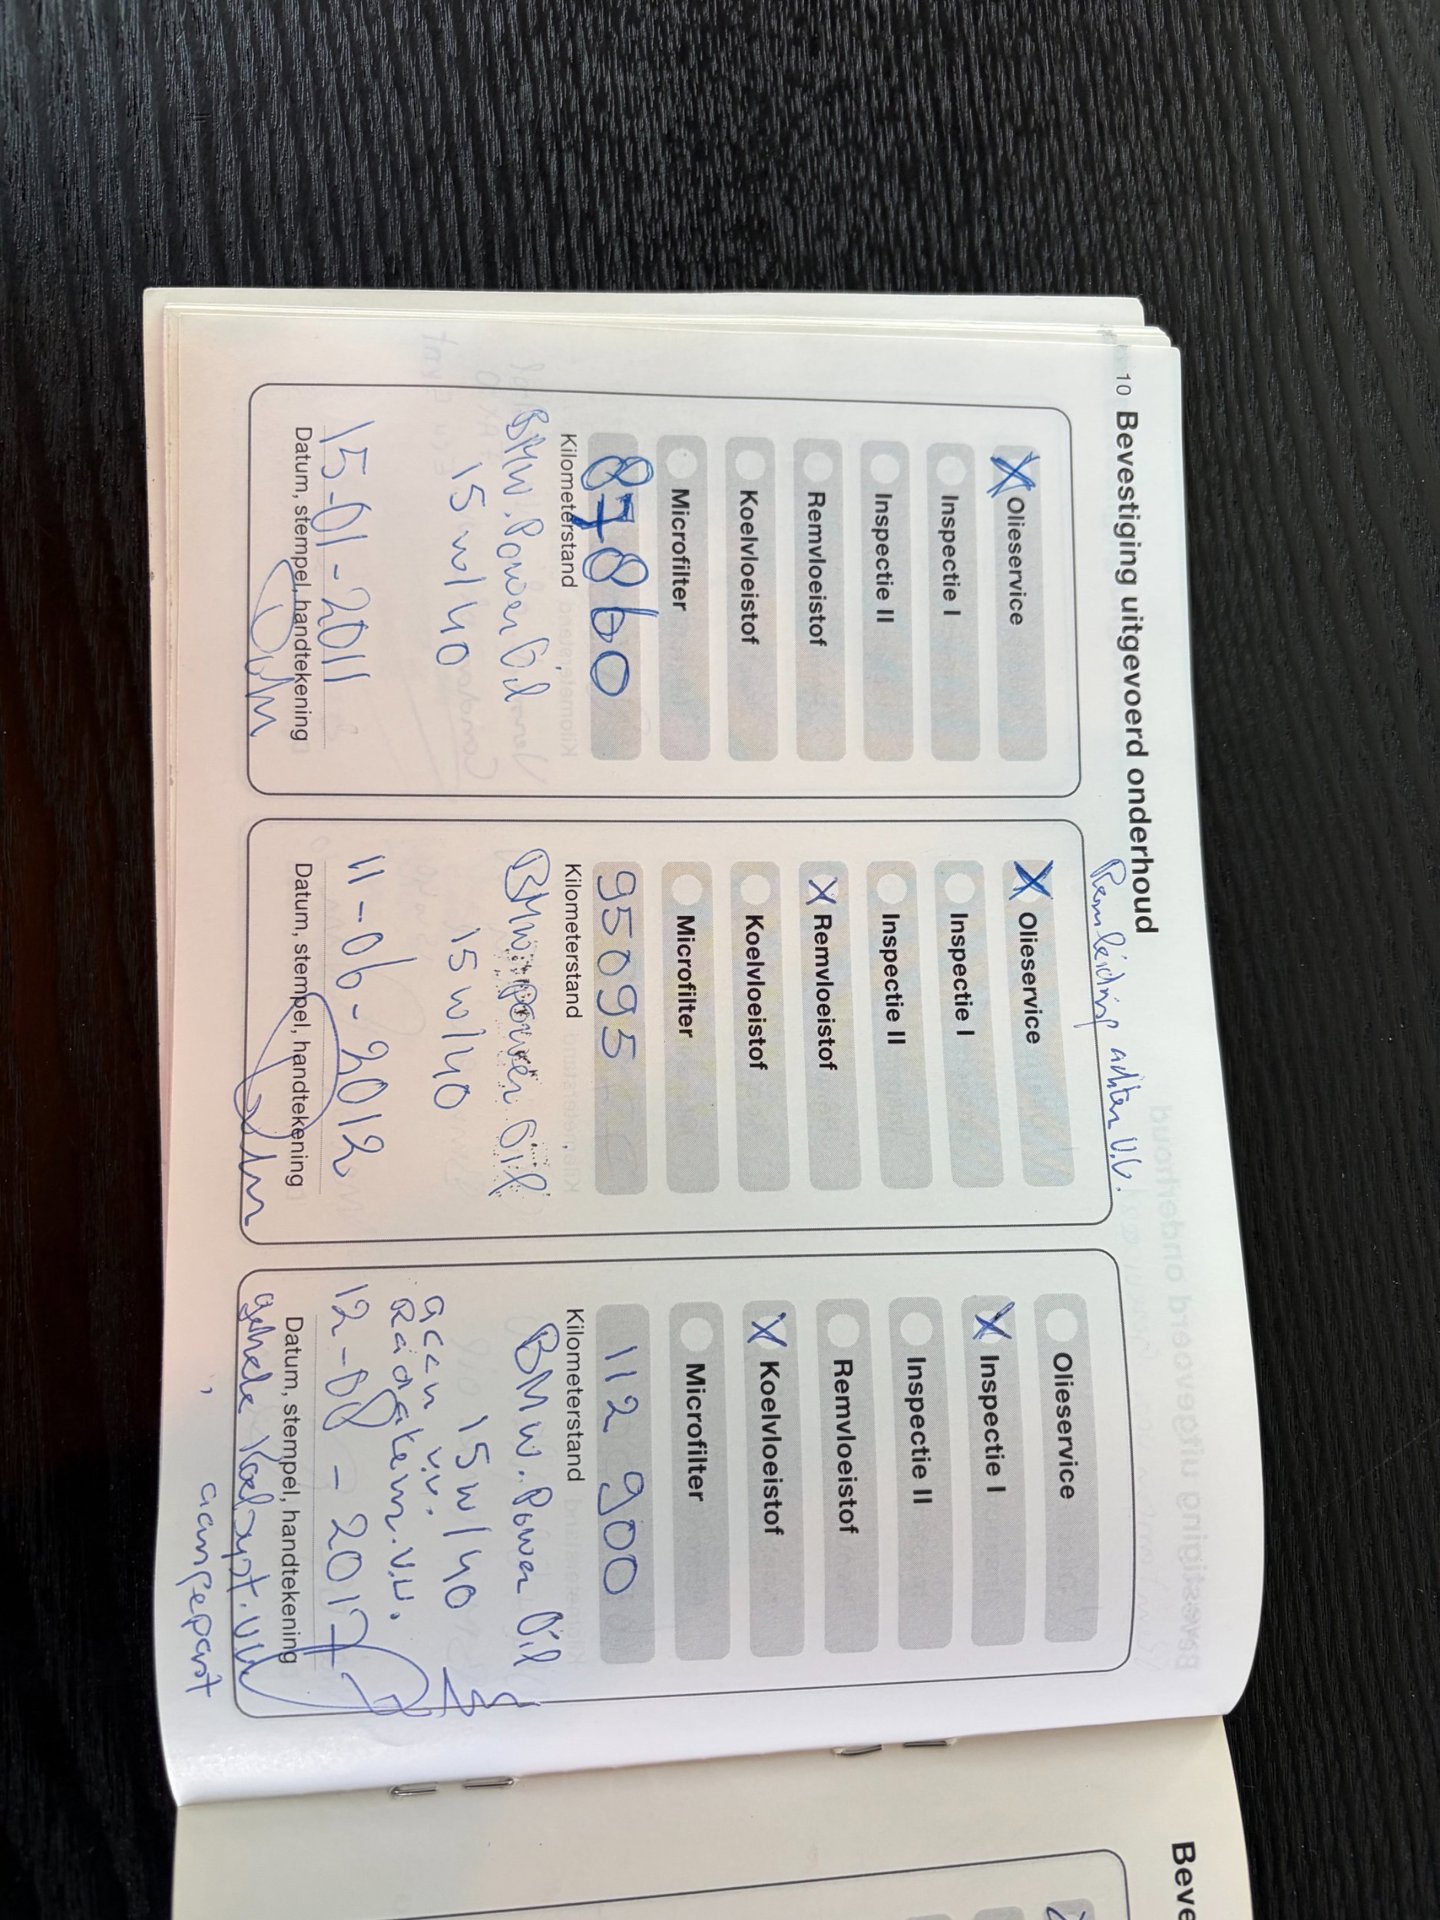 10 Bevestiging uitgevoerd onderhoud
X Olieservice
Inspectie I
Inspectie II
Remvloeistof
Koelvloeistof
Microfilter
87860
Kilometerstand
BMW. Power Oil
15w/40
15-01-2011
Datum, stempel, handtekening
Remleiding achter V.V.
X Olieservice
Inspectie I
Inspectie II
X Remvloeistof
Koelvloeistof
Microfilter
95095
Kilometerstand
BMW. Power Oil
15w/40
11-06-2012
Datum, stempel, handtekening
Olieservice
X Inspectie I
Inspectie II
Remvloeistof
X Koelvloeistof
Microfilter
112 900
Kilometerstand
BMW. Power Oil
15w/40
accu V.V.
12-08-2017
Datum, stempel, handtekening
gehele
aangepast
Beve